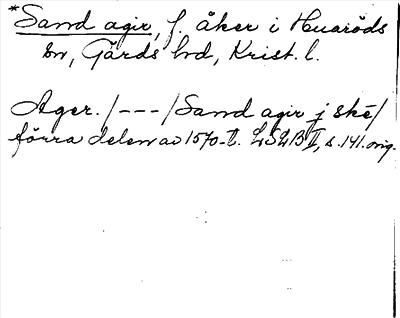 *Sand agir, f. åker i Huaröds
sn, Gärds hd, Krist. l.
Ager. /---/ Sand agir j ske/
förra delen av 1570-t. LSLB II, s. 141. orig.